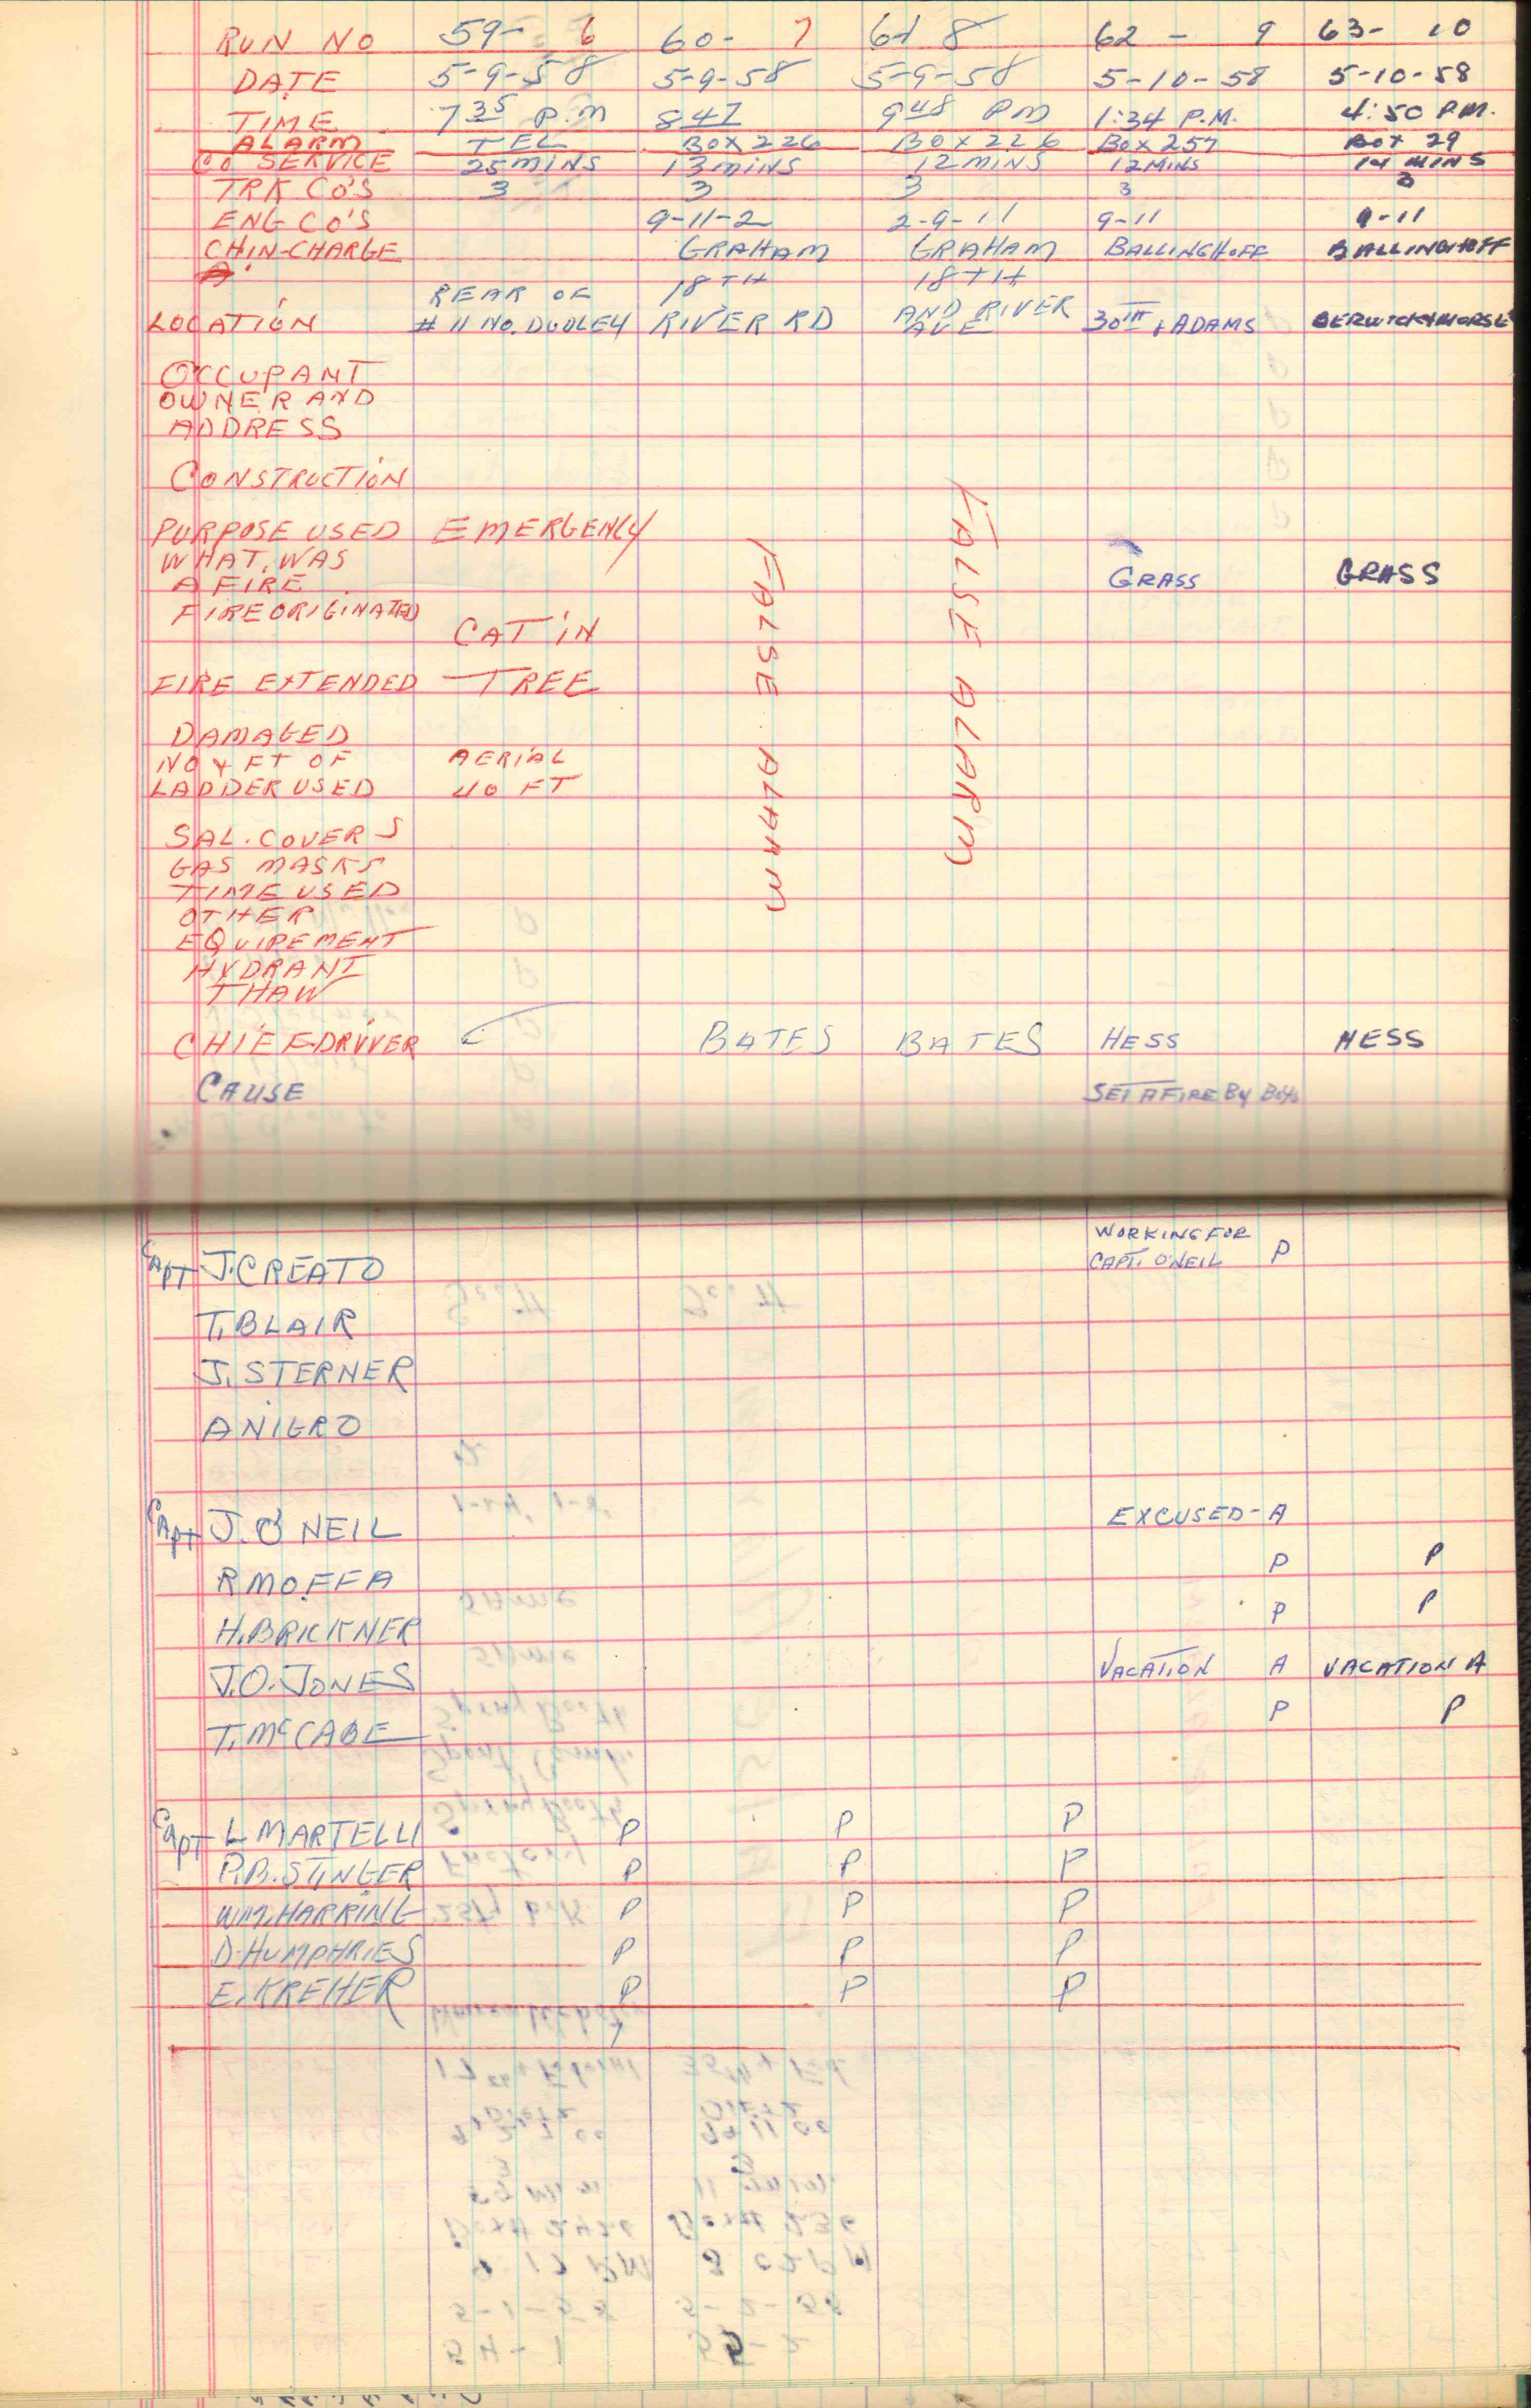 RUN NO 59- 6 60- 7 61 8 62 - 9 63- 10
DATE 5-9-58 5-9-58 5-9-58 5-10-58 5-10-58
TIME 7 35 P.M 8 47 9 48 PM 1:34 P.M. 4:50 P.M.
ALARM TEL BOX 226 BOX 226 BOX 257 BOX 29
CO SERVICE 25 MINS 13 MINS 12 MINS 12 MINS 14 MINS
TRK CO'S 3 3 3 3 3
ENG CO'S 9-11-2 2-9-11 9-11 9-11
CH IN-CHARGE GRAHAM GRAHAM BALLINGHOFF BALLINGHOFF
REAR OF 18TH 18TH
LOCATION # 11 NO. DUDLEY RIVER RD AND RIVER AVE 30TH + ADAMS BERWICK + MORSE
OCCUPANT
OWNER AND
ADDRESS
CONSTRUCTION
PURPOSE USED EMERGENCY
WHAT WAS
A FIRE GRASS GRASS
FIRE ORIGINATED
CAT IN
FIRE EXTENDED TREE
FALSE ALARM
FALSE ALARM
DAMAGED
NO + FT OF AERIAL
LADDER USED 40 FT
SAL. COVERS
GAS MASKS
TIME USED
OTHER
EQUIPEMENT
HYDRANT
THAW
CHIEF-DRIVER BATES BATES HESS HESS
CAUSE SET A FIRE BY BOYS
WORKING FOR
CAPT J. CREATO CAPT. O'NEIL P
T. BLAIR
J. STERNER
A NIGRO
CAPT J. O'NEIL EXCUSED - A
R MOFFA P P
H. BRICKNER P P
J. O. JONES VACATION A VACATION A
T. McCABE P P
CAPT L MARTELLI P P P
P. B. STINGER P P P
WM. HARRING P P P
D. HUMPHRIES P P P
E. KREHER P P P